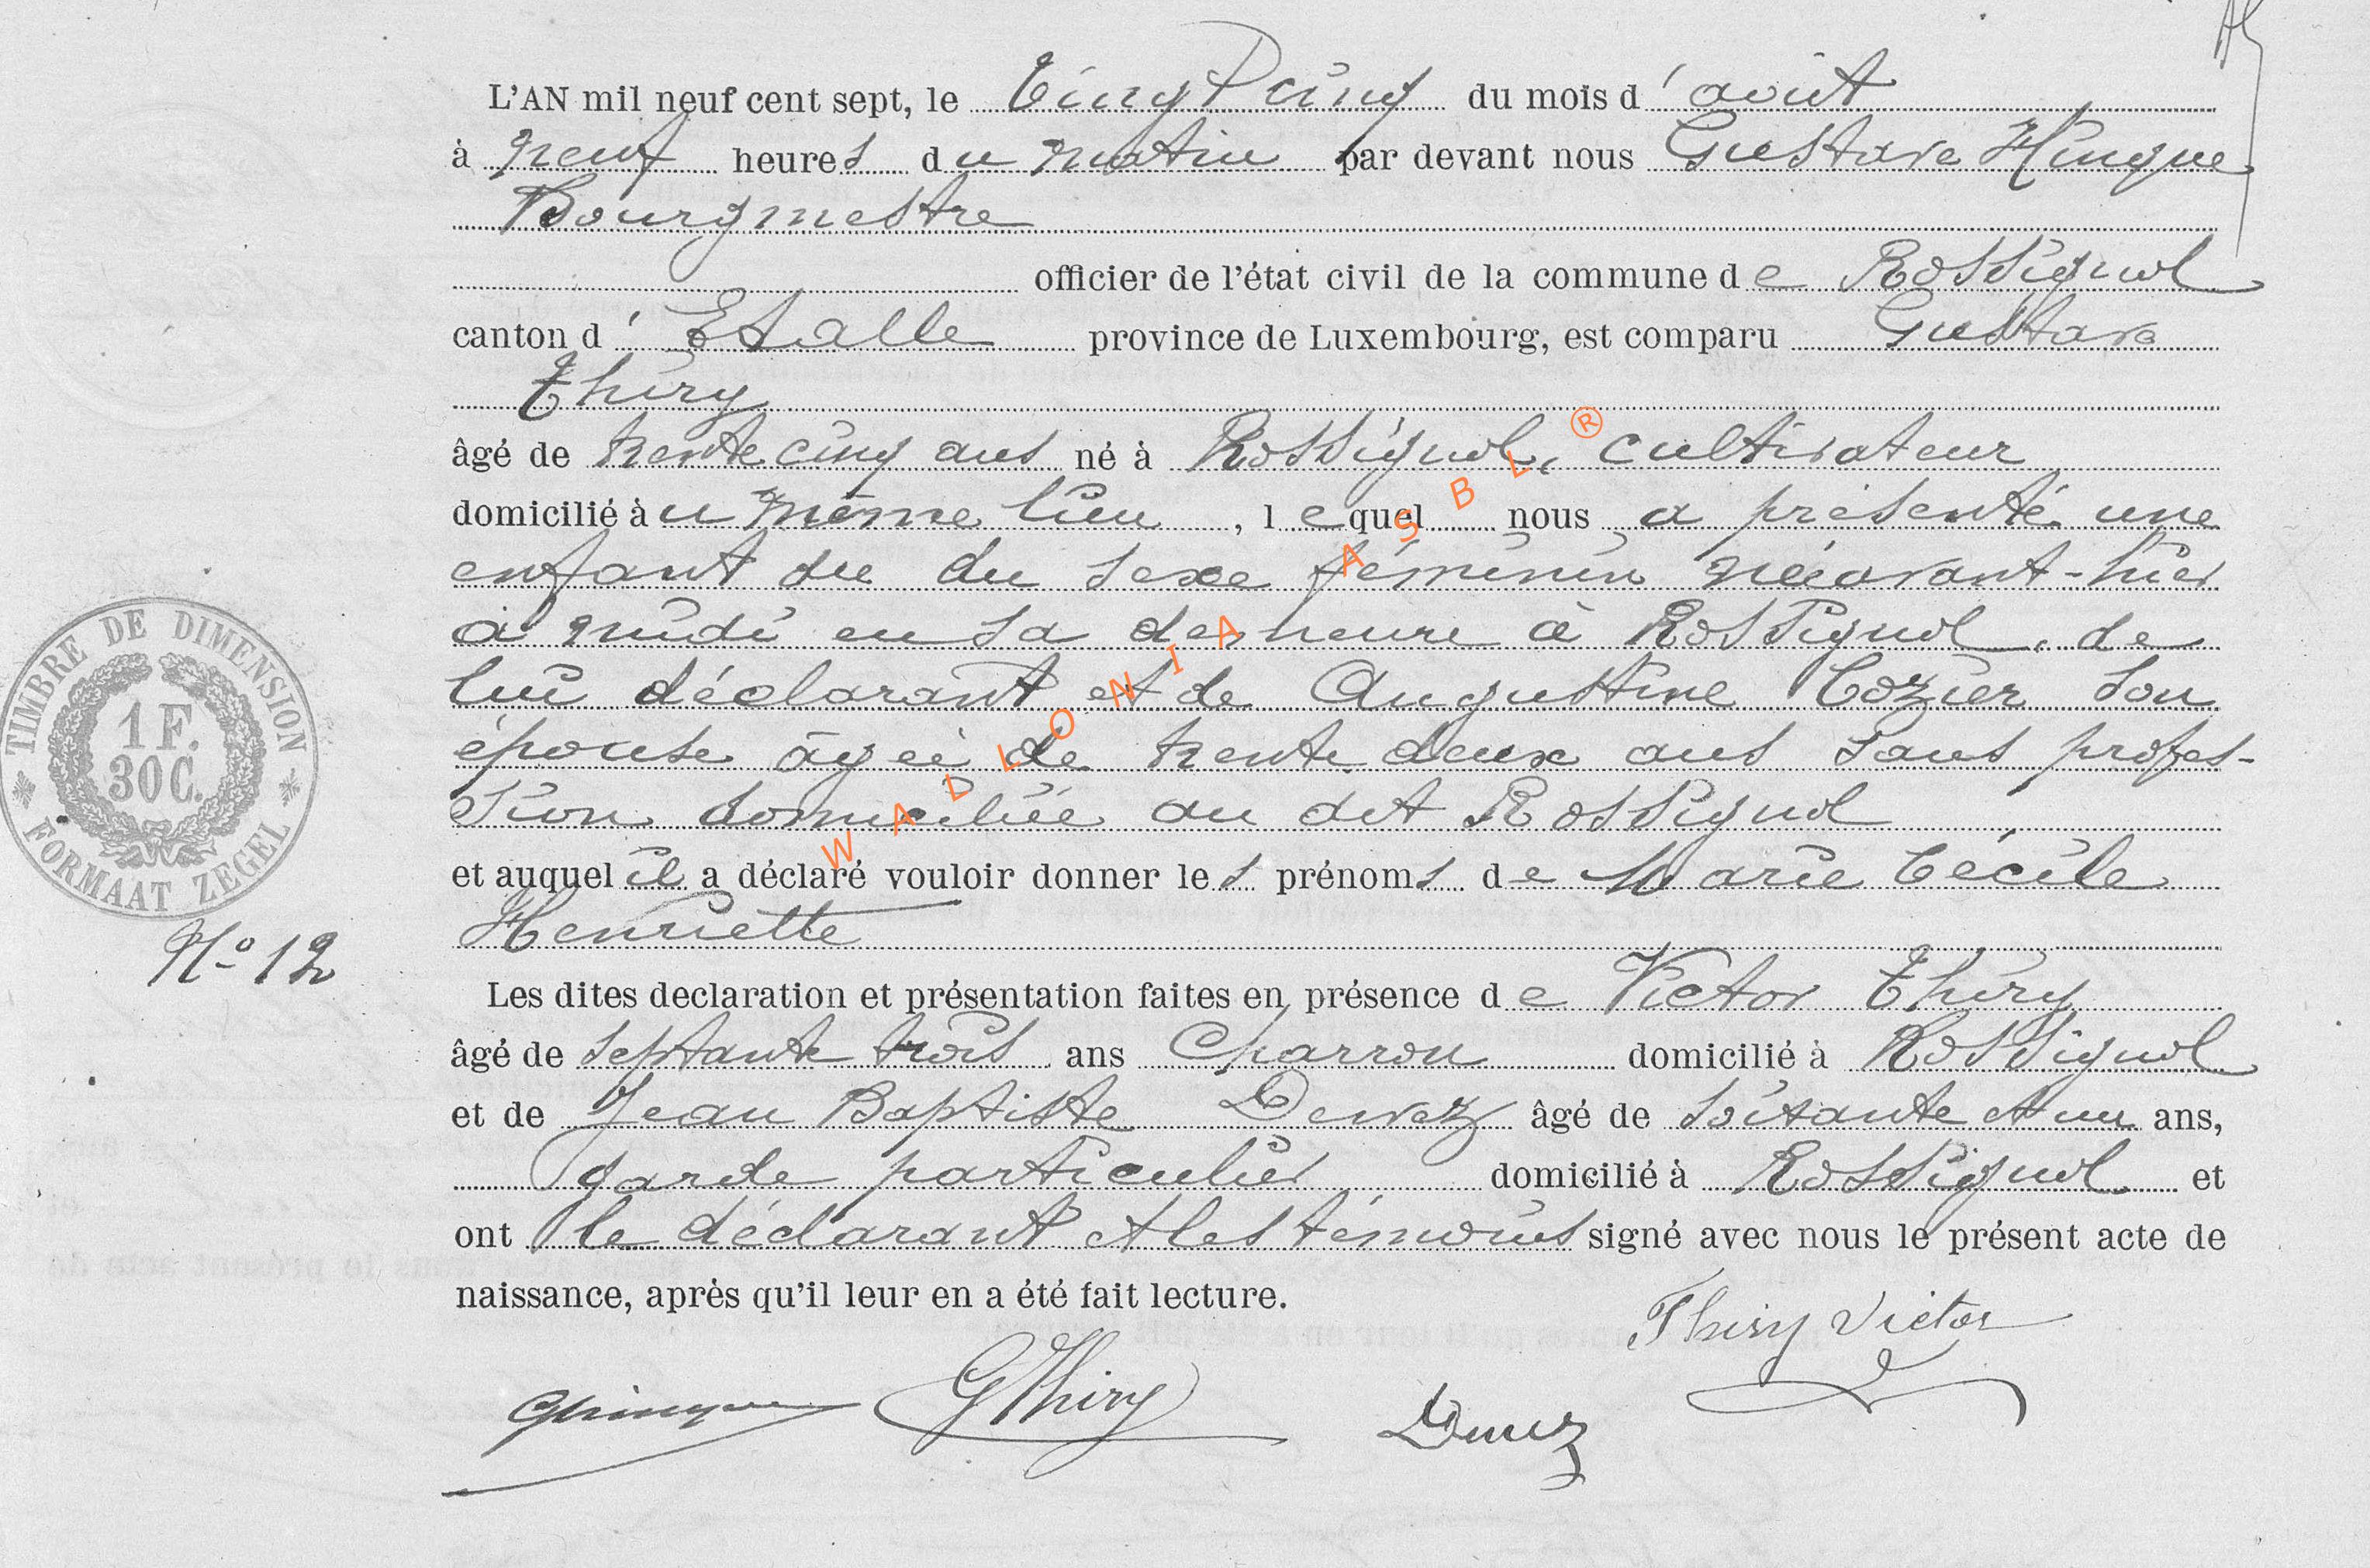 L'AN mil neuf cent sept, le Vingt cinq du mois d'août
à neuf heures du matin par devant nous Gustave Hinque
Bourgmestre
officier de l'état civil de la commune de Rossignol
canton d'Etalle province de Luxembourg, est comparu Gustave
Thiry
âgé de trente cinq ans né à Rossignol, cultivateur
domicilié àu même lieu, lequel nous a présenté une
enfant du sexe féminin née avant-hier
à midi en sa demeure à Rossignol, de
lui déclarant et de Augustine Cozier son
épouse âgée de trente deux ans sans profes-
sion domiciliée au dit Rossignol
et auquel il a déclaré vouloir donner les prénoms de Marie Cécile
Henriette
Nº 12
Les dites declaration et présentation faites en présence de Victor Thiry
âgé de septante trois ans Charron domicilié à Rossignol
et de Jean Baptiste Dewez âgé de soixante et un ans,
garde particulier domicilié à Rossignol et
ont le déclarant et les témoins signé avec nous le présent acte de
naissance, après qu'il leur en a été fait lecture.
Thiry Victor
GHinque GThiry Dewez
TIMBRE DE DIMENSION
1 F.
30 C.
FORMAAT ZEGEL
WALLONIA ASBL ®